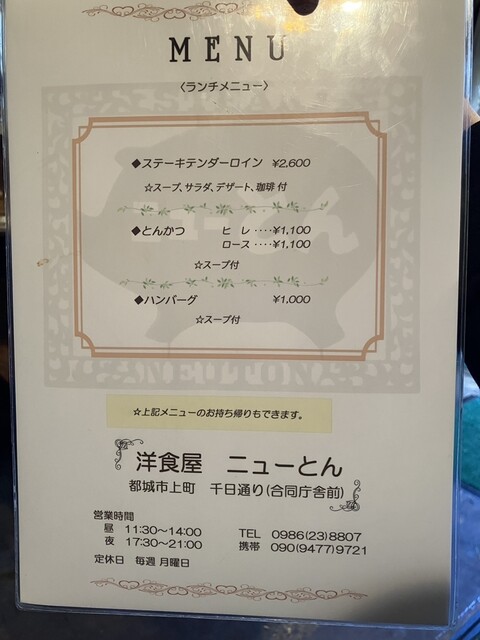 MENU
〈ランチメニュー〉
◆ステーキテンダーロイン ¥2,600
☆スープ、サラダ、デザート、珈琲 付
ニューとん
◆とんかつ ヒ レ ‥‥¥1,100
ロース ‥‥¥1,100
☆スープ付
◆ハンバーグ ¥1,000
☆スープ付
NEUTON
☆上記メニューのお持ち帰りもできます。
洋食屋 ニューとん
都城市上町 千日通り(合同庁舎前)
営業時間
昼 11:30～14:00
夜 17:30～21:00
定休日 毎週 月曜日
TEL 0986(23)8807
携帯 090(9477)9721